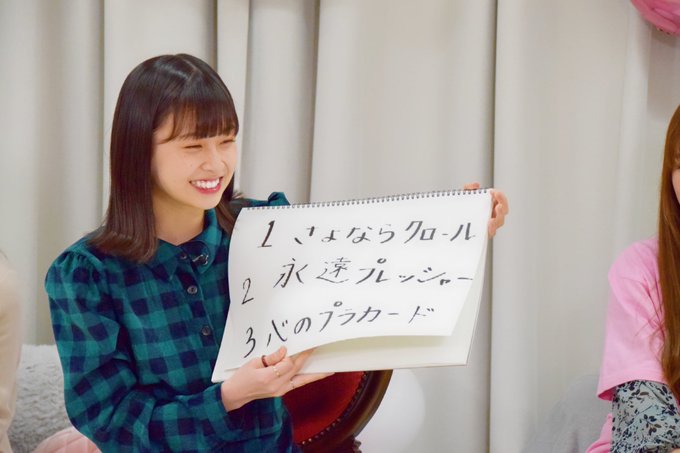 1 さよならクロール
2 永遠プレッシャー
3 心のプラカード